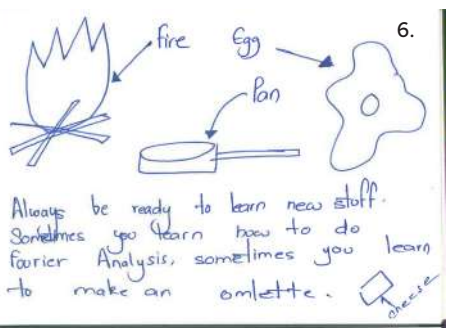 fire
Egg
6.
Pan
Always be ready to learn new stuff.
Sometimes you learn how to do
fourier Analysis, sometimes you learn
to make an omlette.
cheese